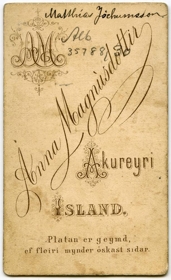 Matthías Jochumsson
AM
Alb
35788
Anna Magnúsdóttir
Akureyri
ÍSLAND.
Platan er geymd,
ef fleiri mynder óskast síðar.